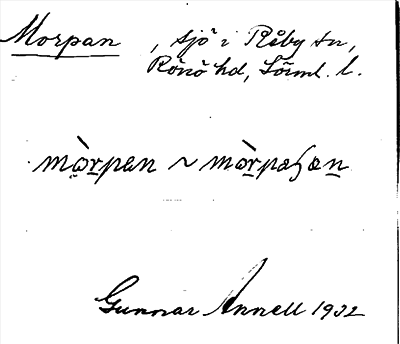 Morpan, sjö i Råby sn,
Rönö hd, Sörml. l.
mòrpan ~ mòrpasjön
Gunnar Annell 1932